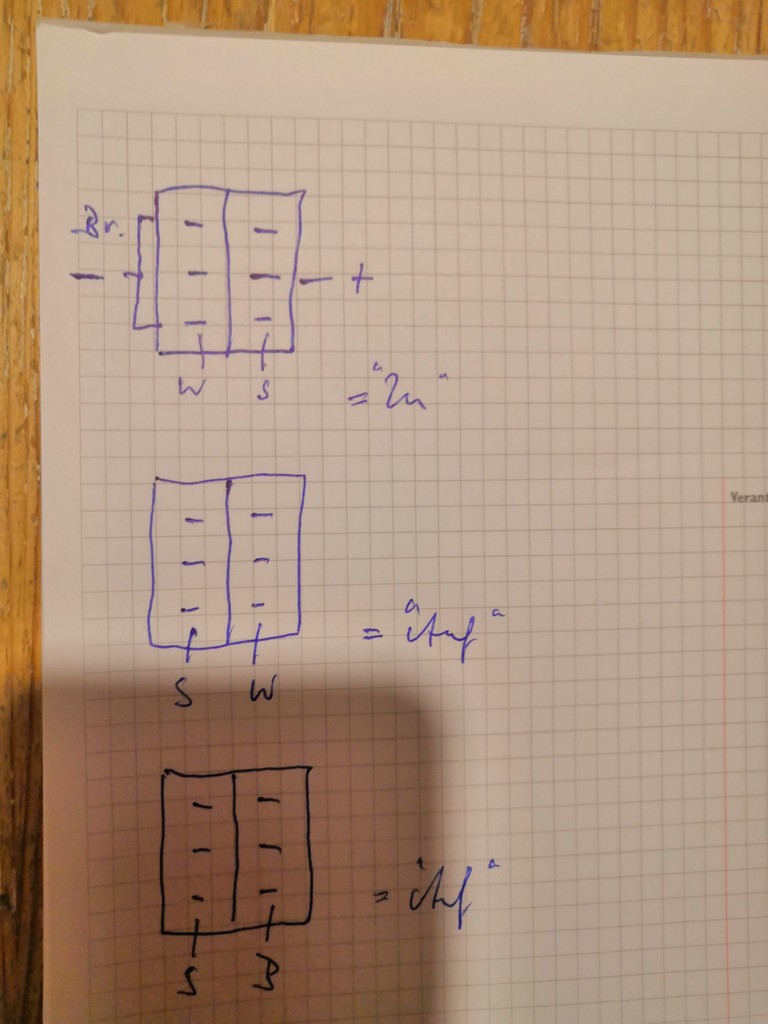 Br.
- - +
W S
= "Zu"
Veran
= "Auf"
S W
= "Auf"
S B